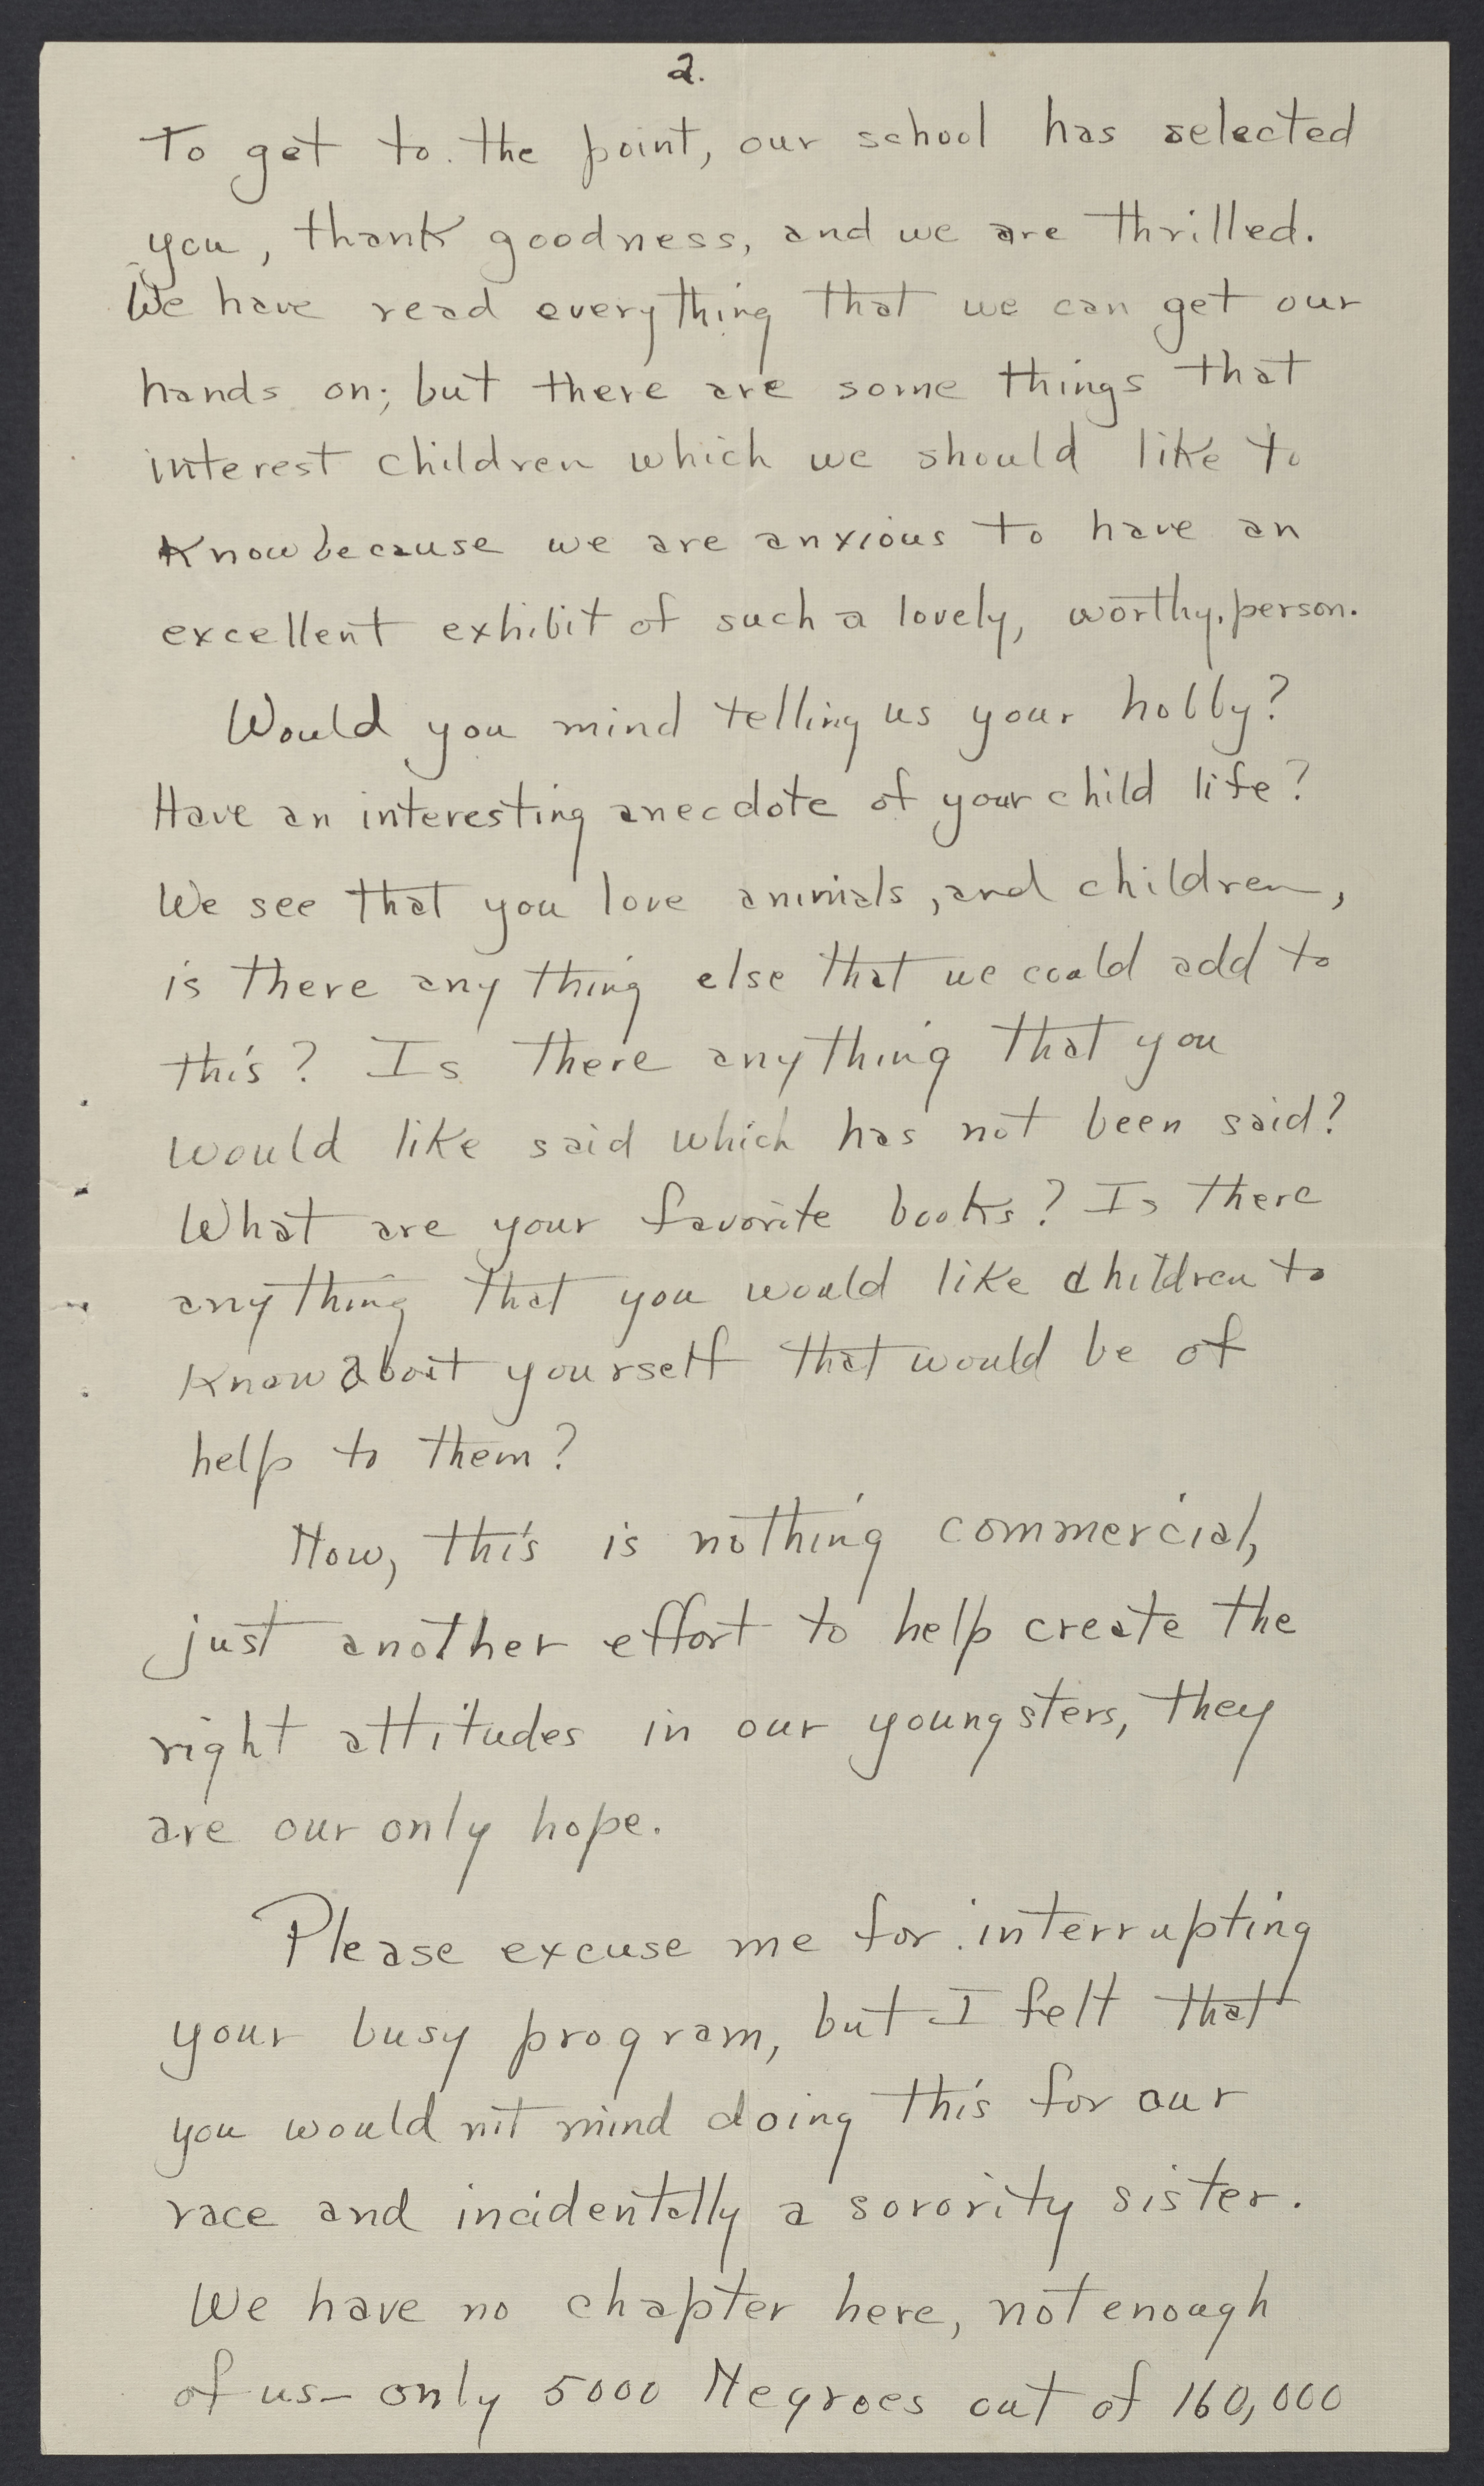 2.
To get to the point, our school has selected
you, thank goodness, and we are thrilled.
We have read everything that we can get our
hands on; but there are some things that
interest children which we should like to
know because we are anxious to have an
excellent exhibit of such a lovely, worthy, person.
Would you mind telling us your hobby?
Have an interesting anecdote of your child life?
We see that you love animals, and children,
is there any thing else that we could add to
this? Is there anything that you
would like said which has not been said?
What are your favorite books? Is there
anything that you would like children to
know about yourself that would be of
help to them?
Now, this is nothing commercial,
just another effort to help create the
right attitudes in our youngsters, they
are our only hope.
Please excuse me for interrupting
your busy program, but I felt that
you would not mind doing this for our
race and incidentally a sorority sister.
We have no chapter here, not enough
of us - only 5000 Negroes out of 160,000